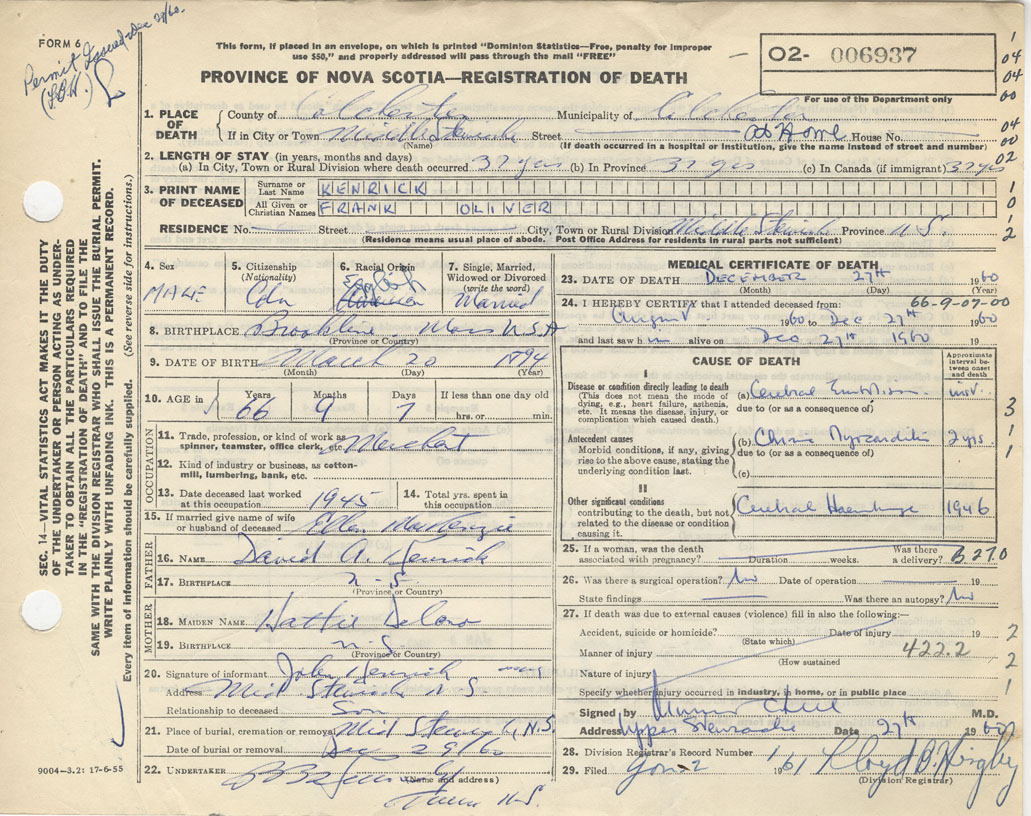 FORM 6
Permit Issued Dec 29/60.
(L.B.H.)
This form, if placed in an envelope, on which is printed "Dominion Statistics—Free, penalty for improper
use $50," and properly addressed will pass through the mail "FREE"
02- 006937
PROVINCE OF NOVA SCOTIA—REGISTRATION OF DEATH
For use of the Department only
1. PLACE OF DEATH
County of Colchester Municipality of Colchester
If in City or Town Middle Stewiacke Street At Home House No.
(Name) (If death occurred in a hospital or institution, give the name instead of street and number)
2. LENGTH OF STAY (in years, months and days)
(a) In City, Town or Rural Division where death occurred 32 yrs (b) In Province 32 yrs (c) In Canada (if immigrant) 32 yrs
3. PRINT NAME OF DECEASED
Surname or Last Name KENRICK
All Given or Christian Names FRANK OLIVER
RESIDENCE No. Street City, Town or Rural Division Middle Stewiacke Province N.S.
(Residence means usual place of abode. Post Office Address for residents in rural parts not sufficient)
4. Sex MALE
5. Citizenship (Nationality) Cdn
6. Racial Origin English
7. Single, Married, Widowed or Divorced (write the word) Married
8. BIRTHPLACE Brookline, Mass USA
(Province or Country)
9. DATE OF BIRTH March 20 1894
(Month) (Day) (Year)
10. AGE in Years 66 Months 9 Days 7 If less than one day old
hrs. or min.
OCCUPATION
11. Trade, profession, or kind of work as
spinner, teamster, office clerk, etc. Merchant
12. Kind of industry or business, as cotton-
mill, lumbering, bank, etc.
13. Date deceased last worked
at this occupation 1945
14. Total yrs. spent in
this occupation
15. If married give name of wife
or husband of deceased Ellen MacKenzie
FATHER
16. NAME David A. Kenrick
17. BIRTHPLACE N-S
(Province or Country)
MOTHER
18. MAIDEN NAME Hattie
19. BIRTHPLACE N.S.
(Province or Country)
20. Signature of informant John Kenrick
Address Mid Stewiacke N S
Relationship to deceased Son
21. Place of burial, cremation or removal Mid Stewiacke, N.S.
Date of burial or removal Dec 29/60
22. UNDERTAKER
(Name and address)
Truro N.S.
9004—3.2: 17-6-55
MEDICAL CERTIFICATE OF DEATH
23. DATE OF DEATH DECEMBER 27th 1960
(Month) (Day) (Year)
24. I HEREBY CERTIFY that I attended deceased from: 66-9-07-00
August 1960 to Dec 27th 1960
and last saw him alive on Dec 27th 1960 19
CAUSE OF DEATH
Approximate interval between onset and death
I
Disease or condition directly leading to death
(This does not mean the mode of dying, e.g., heart failure, asthenia, etc. It means the disease, injury, or complication which caused death.)
(a) Cerebral Embolism inst.
due to (or as a consequence of)
Antecedent causes
Morbid conditions, if any, giving rise to the above cause, stating the underlying condition last.
(b) Chronic Myocarditis 2 yrs.
due to (or as a consequence of)
(c)
II
Other significant conditions
contributing to the death, but not related to the disease or condition causing it.
Cerebral Haemorrhage 1946
25. If a woman, was the death
associated with pregnancy? Duration weeks. Was there a delivery? B 270
26. Was there a surgical operation? No Date of operation 19
State findings Was there an autopsy? No
27. If death was due to external causes (violence) fill in also the following:—
Accident, suicide or homicide? Date of injury 19
(State which)
Manner of injury 422.2
(How sustained
Nature of injury
Specify whether injury occurred in industry, in home, or in public place
Signed by M.D.
Address Upper Stewiacke Date 27th 1960
28. Division Registrar's Record Number 1
29. Filed Jan 2 1961 Lloyd B. Kingby
(Division Registrar)
1
04
04
00
04
00
02
1
0
1
2
3
1
1
2
2
1
SEC. 14—VITAL STATISTICS ACT MAKES IT THE DUTY
OF THE UNDERTAKER OR PERSON ACTING AS UNDER-
TAKER TO OBTAIN ALL THE PARTICULARS REQUIRED
IN THE "REGISTRATION OF DEATH" AND TO FILE THE
SAME WITH THE DIVISION REGISTRAR WHO SHALL ISSUE THE BURIAL PERMIT.
WRITE PLAINLY WITH UNFADING INK. THIS IS A PERMANENT RECORD.
Every item of information should be carefully supplied. (See reverse side for instructions.)